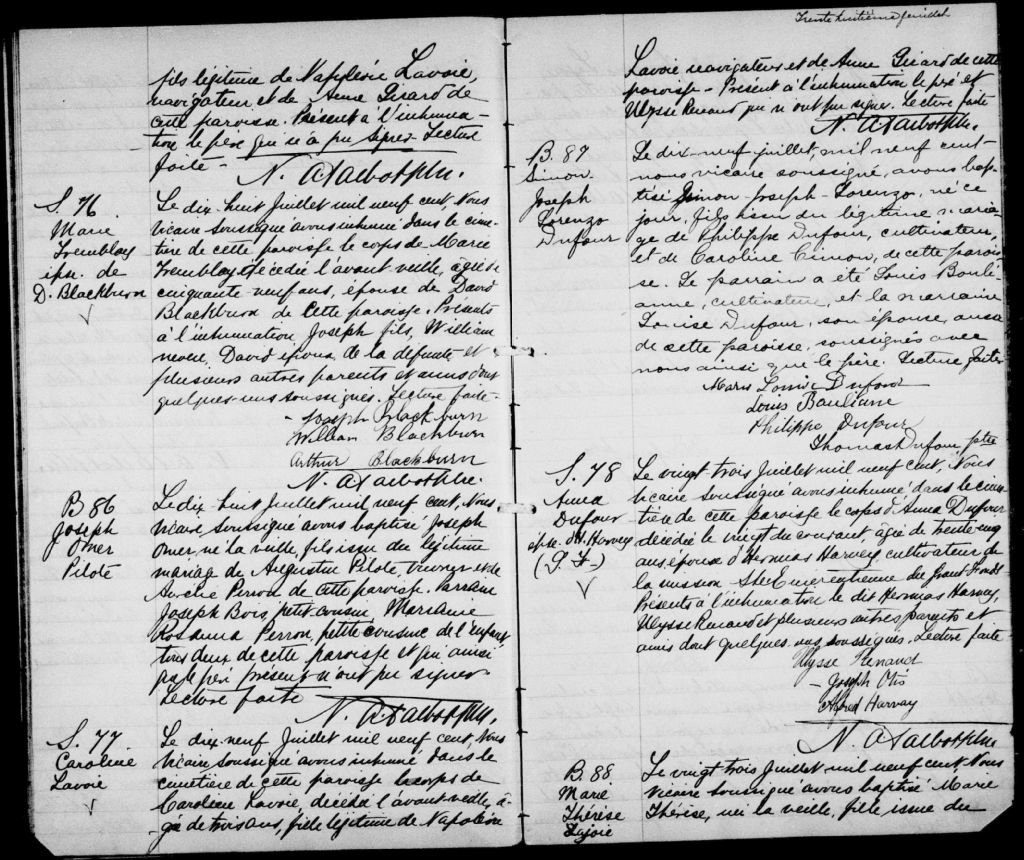 Trente huitième feuillet
fils légitime de Napoléon Lavoie,
navigateur et de Anne Girard de
cette paroisse. Présent à l'inhuma-
tion le père qui n'a pu signer. Lecture
faite -
N. A Talbot Ptre.
S. 76.
Marie
Tremblay
épse. de
D. Blackburn
Le dix-huit Juillet mil neuf cent, Nous
Vicaire soussigné avons inhumé dans le cime-
tière de cette paroisse le corps de Marie
Tremblay décédée l'avant veille, âgée de
cinquante-neuf ans, épouse de David
Blackburn de Cette paroisse. Présents
à l'inhumation, Joseph fils, William
neveu, David époux de la défunte et
plusieurs autres parents et amis dont
quelques-uns soussignés. Lecture faite -
- Joseph Blackburn
William Blackburn
Arthur Blackburn
N. A Talbot Ptre.
B 86
Joseph
Omer
Pilote
Le dix-huit Juillet mil neuf cent, Nous
Vicaire soussigné avons baptisé Joseph
Omer, né la veille, fils issu du légitime
mariage de Augustin Pilote, ouvrier et de
Aurélie Perron de cette paroisse. Parrain
Joseph Bois, petit-cousin, Marraine
Rosanna Perron, petite cousine de l'enfant
tous deux de cette paroisse et qui ainsi
que le père présent n'ont pu signer
Lecture faite
N. A Talbot Ptre.
S. 77.
Caroline
Lavoie
Le dix-neuf Juillet mil neuf cent, Nous
Vicaire soussigné avons inhumé dans le
cimetière de cette paroisse le corps de
Caroline Lavoie, décédée l'avant-veille, â-
gée de trois ans, fille légitime de Napoléon
Lavoie navigateur et de Anne Girard de cette
paroisse - Présent à l'inhumation le père et
Ulysse Renaud qui n'ont pu signer. Lecture faite
N. A Talbot Ptre.
B. 87
Simon
Joseph
Lorenzo
Dufour
Le dix-neuf juillet, mil neuf cent-
nous vicaire soussigné, avons bap-
tisé Simon-Joseph-Lorenzo, né ce
jour, fils issu du légitime maria-
ge de Philippe Dufour, cultivateur,
et de Caroline Simon, de cette parois-
se. Le parrain a été Louis Bouli-
anne, cultivateur, et la marraine
Louise Dufour, son épouse, aussi
de cette paroisse, soussignés avec
nous ainsi que le père. Lecture faite
Marie Louise Dufour
Louis Bouliane
Philippe Dufour
Thomas Dufour, ptre
S. 78
Anna
Dufour
épse. d'H. Harvey
Le vingt trois Juillet mil neuf cent, Nous
Vicaire soussigné avons inhumé, dans le cime-
tière de cette paroisse le corps d'Anna Dufour
décédée le vingt du courant, âgée de trente-cinq
ans épouse d'Hermias Harvey cultivateur de
la mission Ste Emerentienne du Grand Fonds
Présents à l'inhumation le dit Hermias Harvey,
Ulysse Renaud et plusieurs autres parents et
amis dont quelques-uns soussignés. Lecture faite-
Ulysse Renaud
- Joseph Otis
Alfred Harvay
N. A Talbot Ptre
B. 88
Marie
Thérèse
Lajoie
Le vingt trois Juillet mil neuf cent Nous
Vicaire soussigné avons baptisé Marie
Thérèse, née la veille, fille issue du